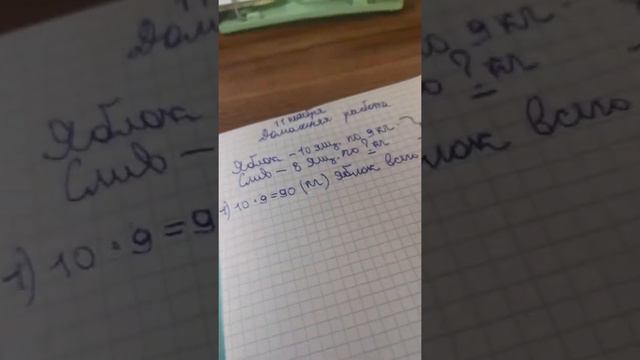 11 ноября
Домашняя работа
Яблок – 10 ящ. по 9 кг
Слив – 8 ящ. по ? кг
1) 10 · 9 = 90 (кг) яблок всего